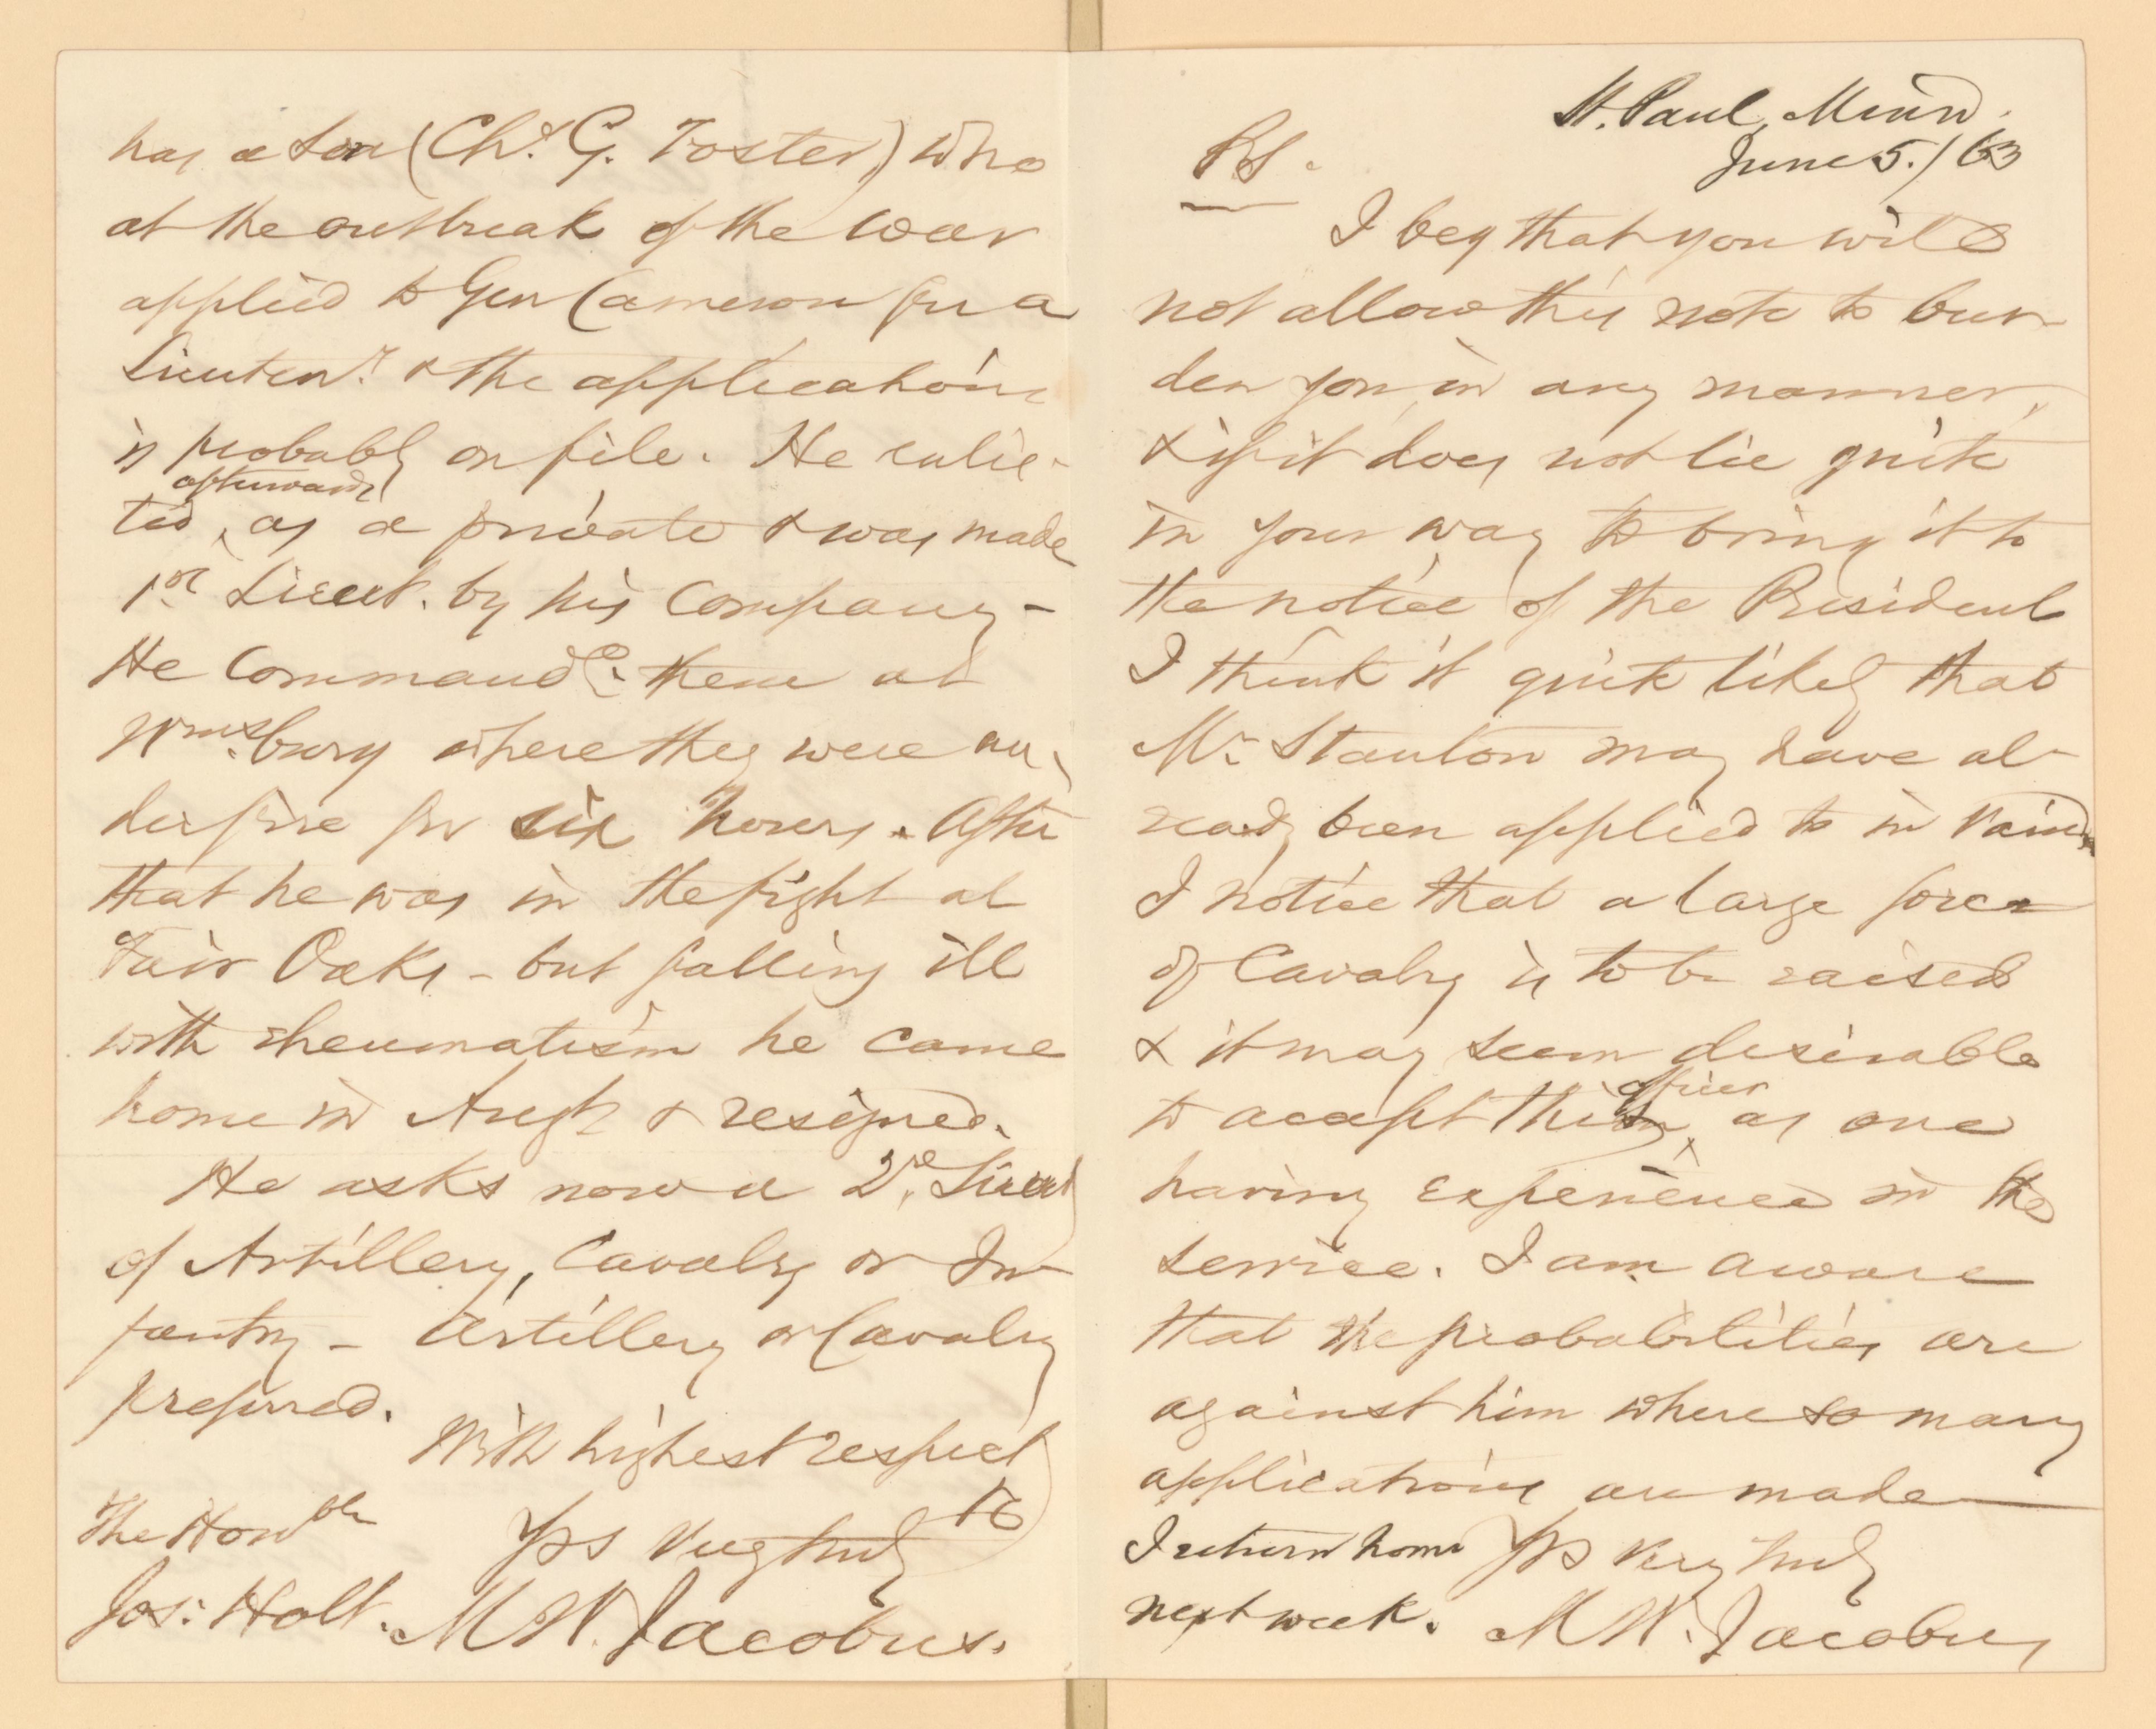 has a son (Chs. G. Foster) who
at the outbreak of the war
applied to Gen Cameron for a
Lieutent. & the application
is probably on file. He enlis-
afterwards
ted, as a private & was made
1st Lieut. by his Company –
He Command.ed them at
Wmsbury where they were un-
der fire for six hours. After
that he was in the fight at
Fair Oaks – but falling ill
with rheumatism he came
home in Augt & resigned.
He asks now a 2d. Lieut
of Artillery, Cavalry or In-
fantry – Artillery or Cavalry
preferred.
With highest respect
The Honble Yrs Very truly
Jos: Holt. M W. Jacobus.
St. Paul, Minn.
June 5./63
PS.
I beg that you will
not allow this note to bur-
den you in any manner,
& if it does not lie quite
in your way to bring it to
the notice of the President
I think it quite likely that
Mr. Stanton may have al-
ready been applied to in vain.
I notice that a large force
of Cavalry is to be raised
& it may seem desirable
officer
to accept this, as one
having experience in the
service. I am aware
that the probabilities are
against him where so many
applications are made
I return home Yrs very truly
next week. M W. Jacobus